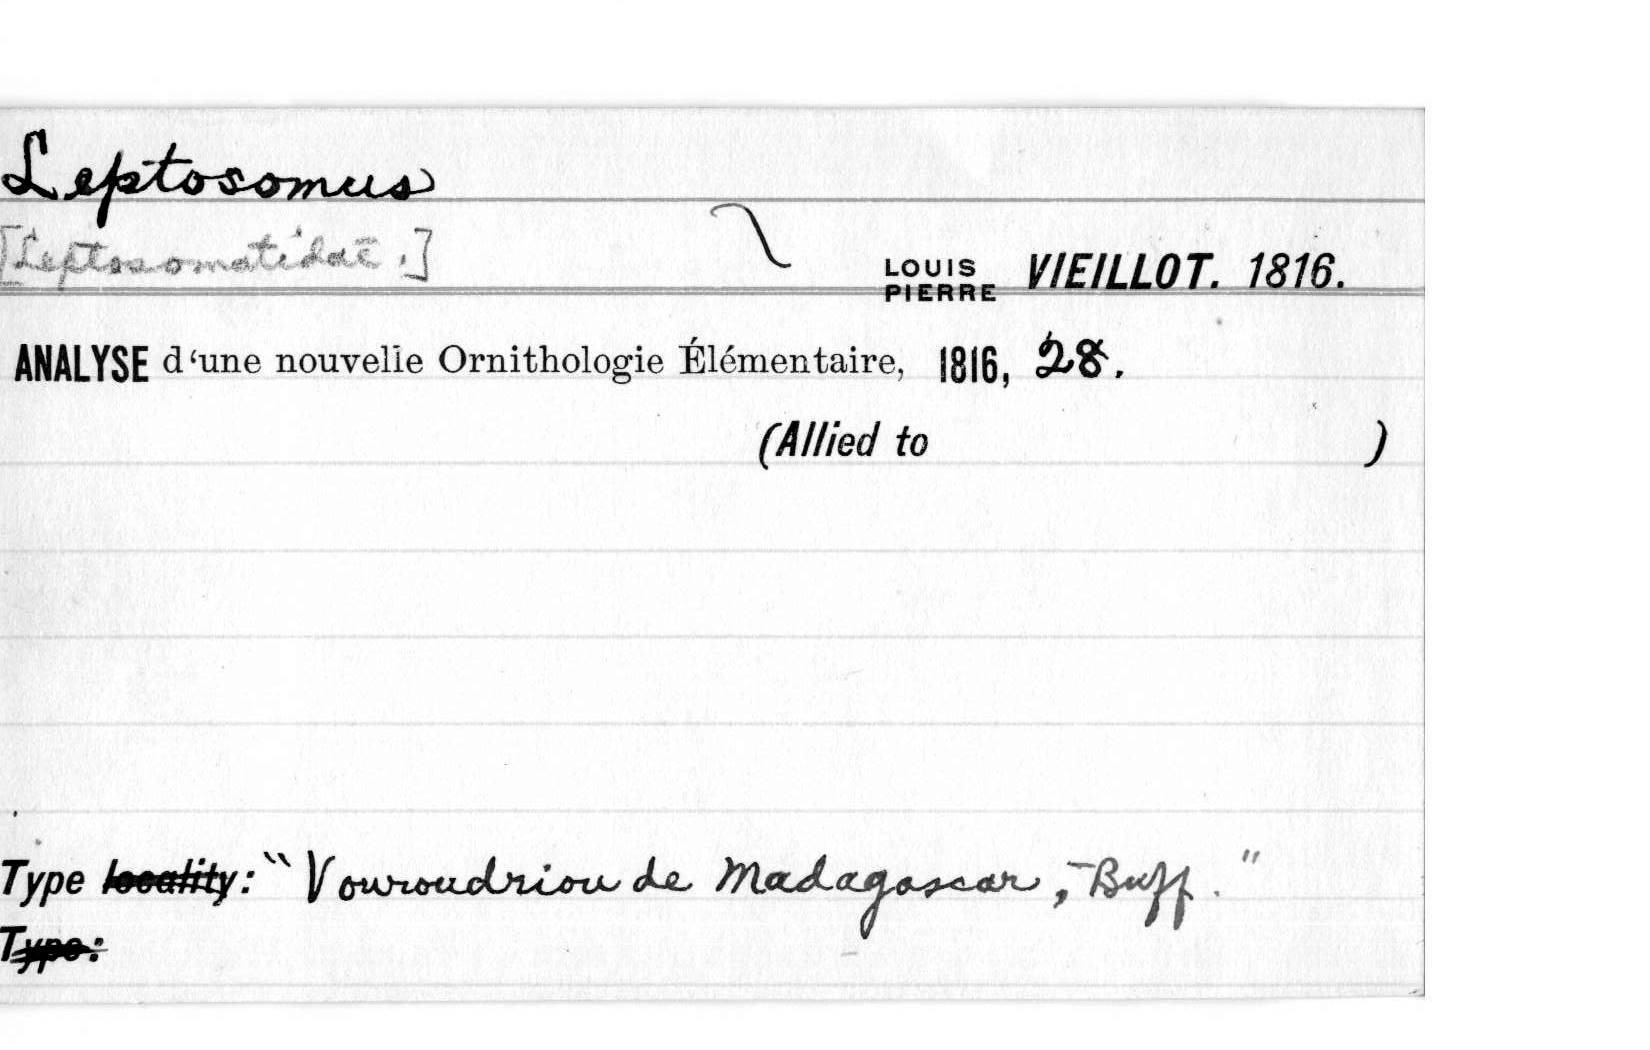 Leptosomus
[Leptosomatidae.]
LOUIS PIERRE VIEILLOT. 1816.
ANALYSE d'une nouvelle Ornithologie Élémentaire, 1816, 28.
(Allied to )
Type locality: "Vouroudriou de Madagascar, - Buff."
Type: